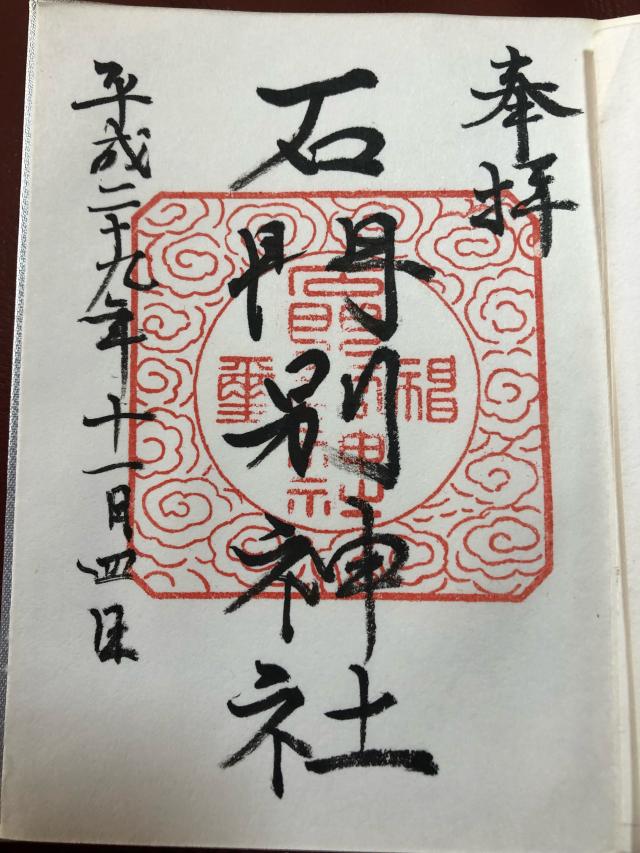 奉拝
石門別神社
平成二十九年十一月四日